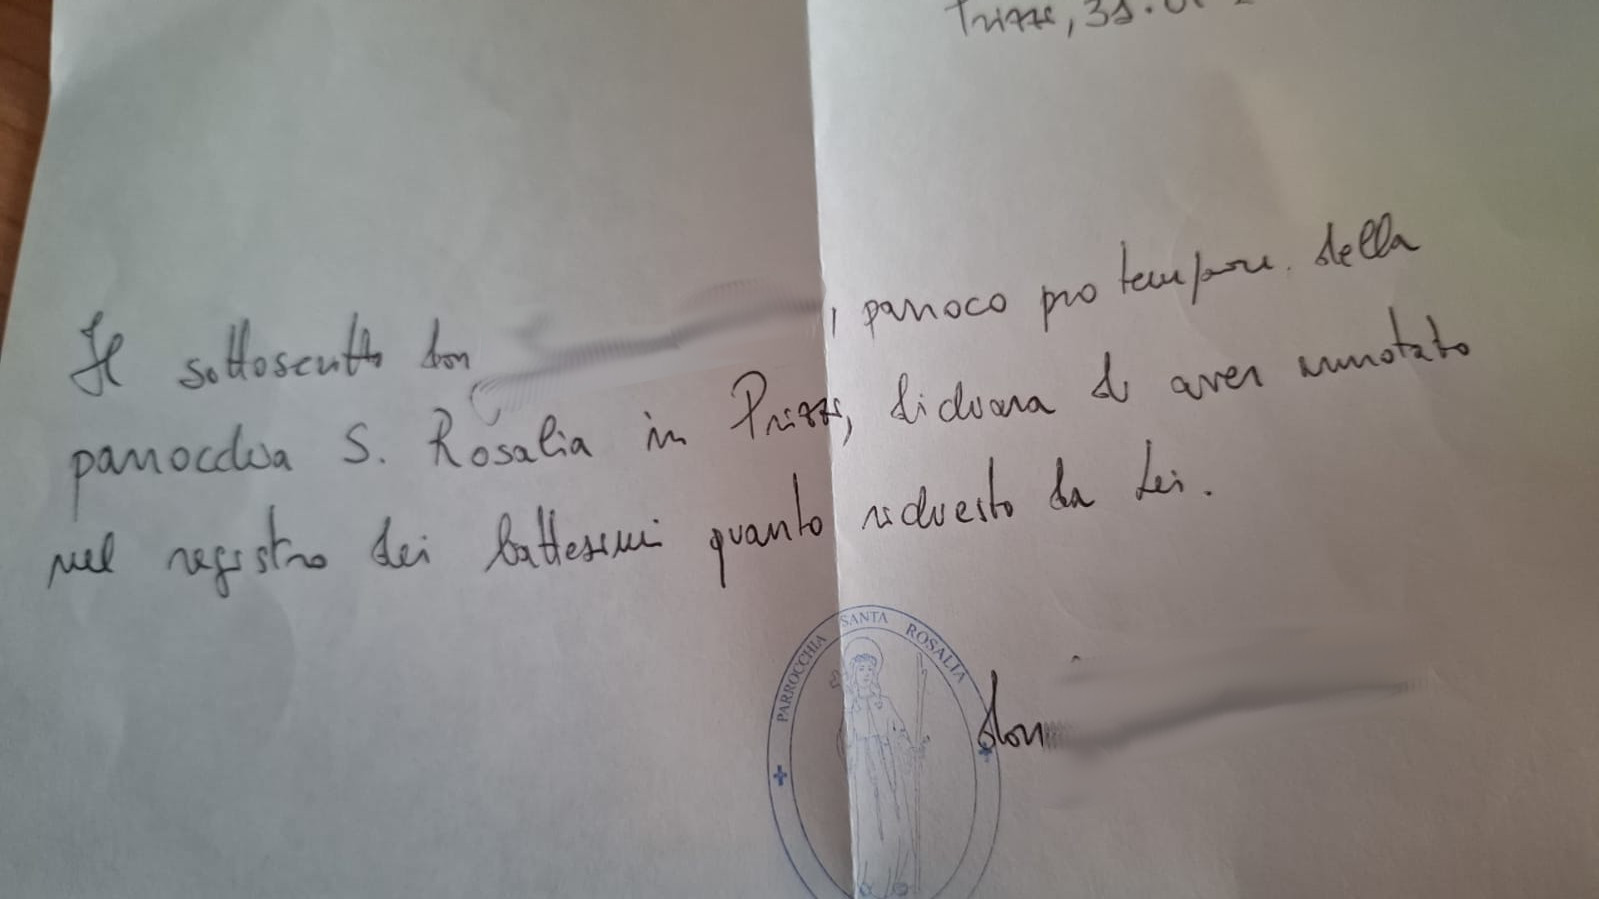 Prizzi, 31.01
Il sottoscritto don , parroco pro tempore della
parrocchia S. Rosalia in Prizzi, dichiara di aver annotato
nel registro dei battesimi quanto richiesto da Lei.
PARROCCHIA SANTA ROSALIA
don